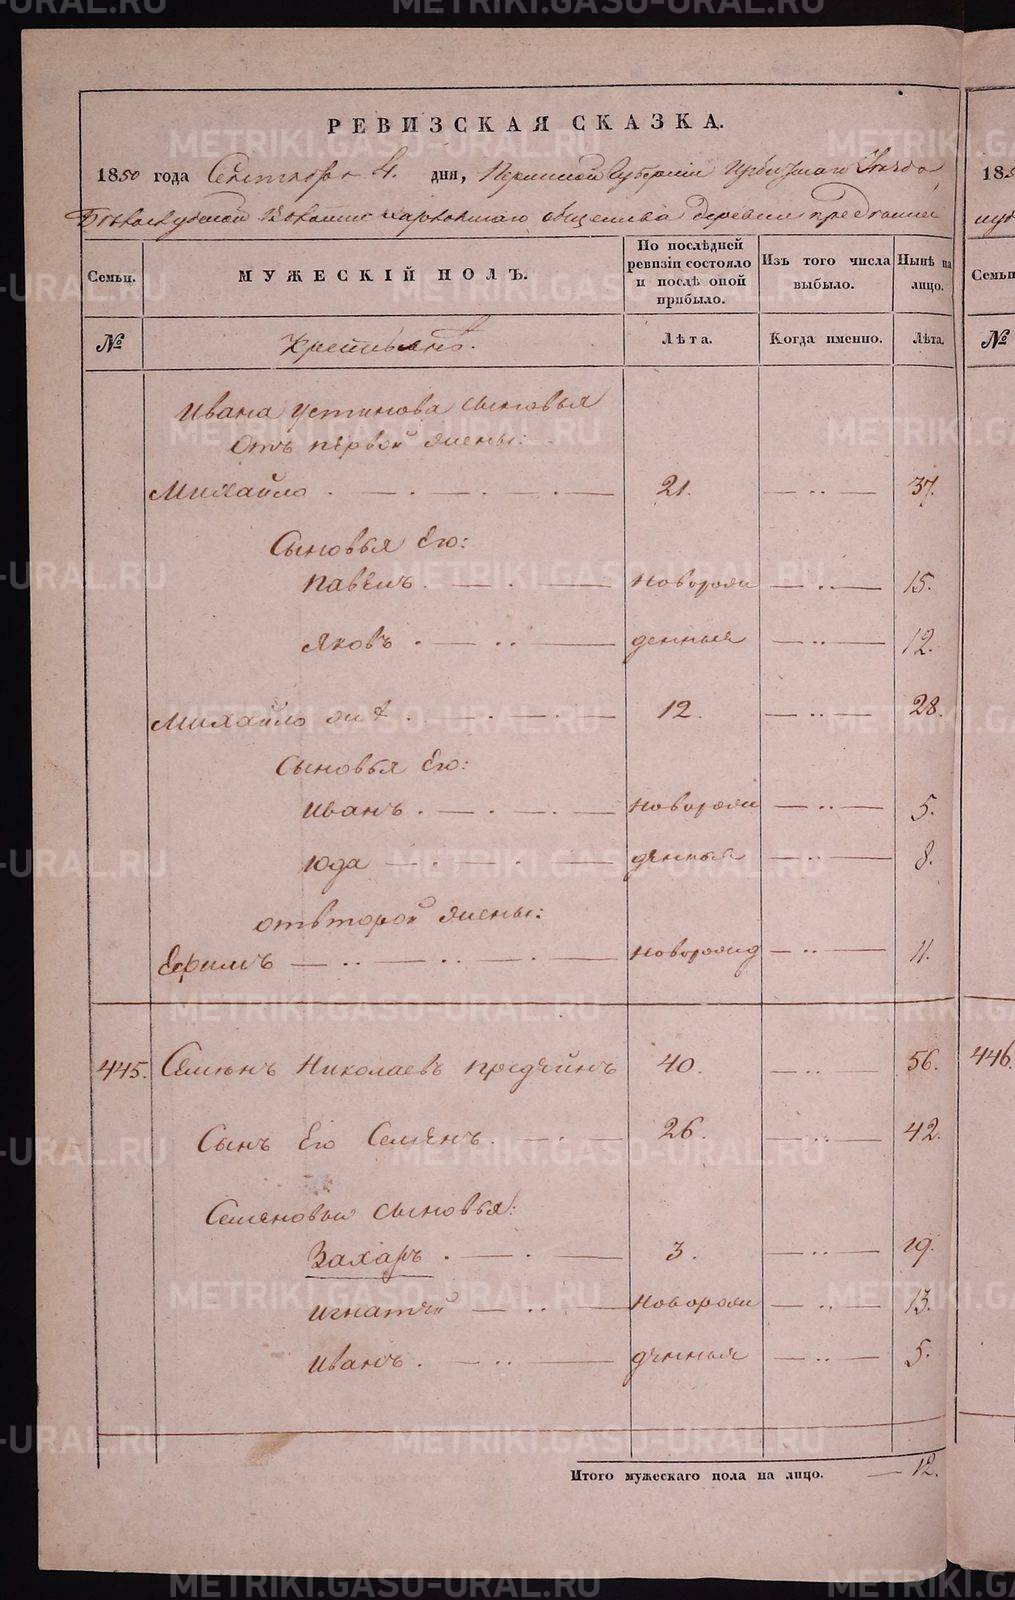 РЕВИЗСКАЯ СКАЗКА.
1850 года Сентября 4. дня, Пермской Губернии Ирбитскаго Уезда,
Белослудской Волости Харловскаго общества деревни
Семьи. МУЖЕСКІЙ ПОЛЪ. По послѣдней ревизіи состояло и послѣ оной прибыло. Изъ того числа выбыло. Нынѣ на лицо.
№ Крестьянъ. Лѣта. Когда именно. Лѣта.
Ивана Устинова сыновья
Отъ первой жены:
Михайло 21. 37.
Сыновья Его:
Павелъ новорож 15.
Яковъ денныя 12.
Михайло же 2 12. 28.
Сыновья Его:
Иванъ новорож 5.
Юда денныя 8.
отъ второй жены:
Ефимъ новорожд 11.
445. Семенъ Николаевъ Предеинъ 40. 56.
Сынъ Его Семенъ 26. 42.
Семеновы сыновья:
Захаръ 3. 19.
Игнатей новорож 13.
Иванъ денныя 5.
Итого мужескаго пола на лицо. 12.
185
Семьи
№
446.
METRIKI.GASO-URAL.RU